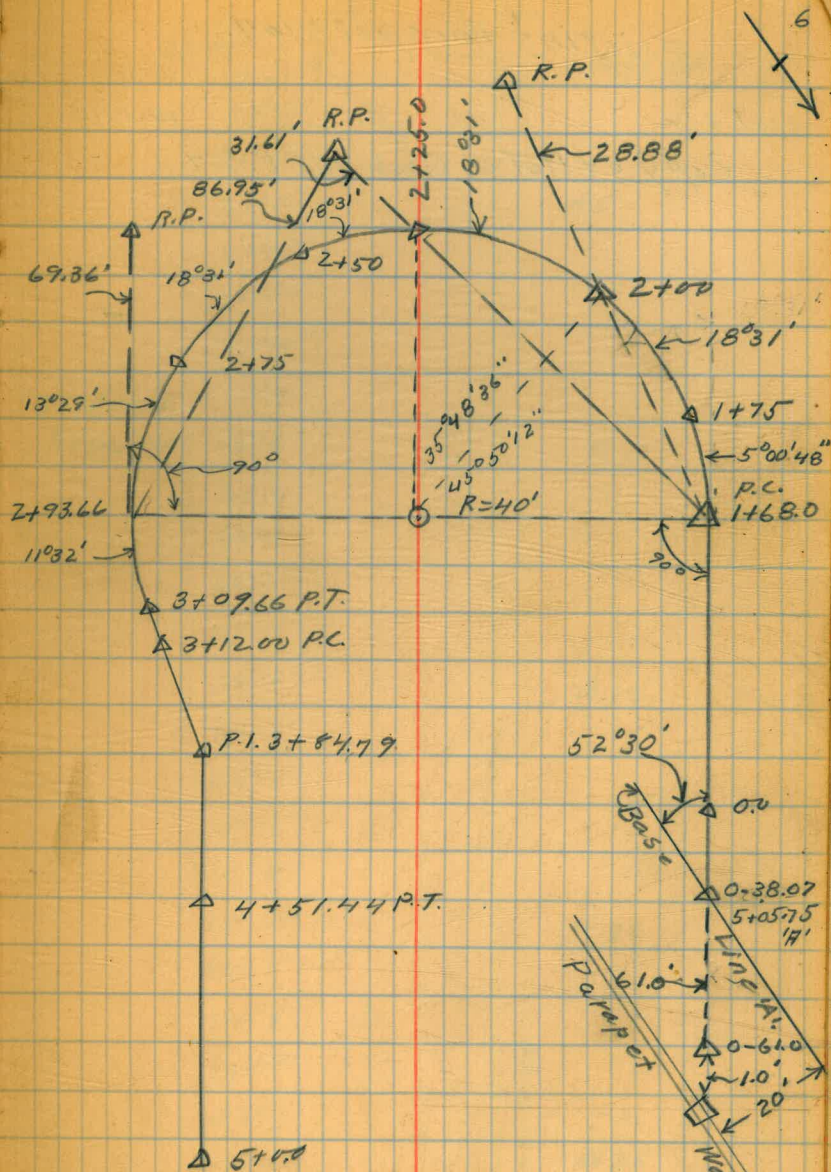 6
R.P.
R.P.
31.61'
28.88'
2+25.0
18°31'
86.95'
18°31'
R.P.
2+50
69.36'
18°31'
2+00
18°31'
2+75
13°29'
1+75
35°48'36"
45°50'12"
5°00'48"
90°
P.C.
2+93.66
R=40'
1+68.0
11°32'
90°
3+09.66 P.T.
3+12.00 P.C.
P.I. 3+84.79
52°30'
0.0
Base
0-38.07
4+51.44 P.T.
5+05.75
'A'
Line 'A'
61.0'
Parapet
0-61.0
1.0'
20
5+0.0